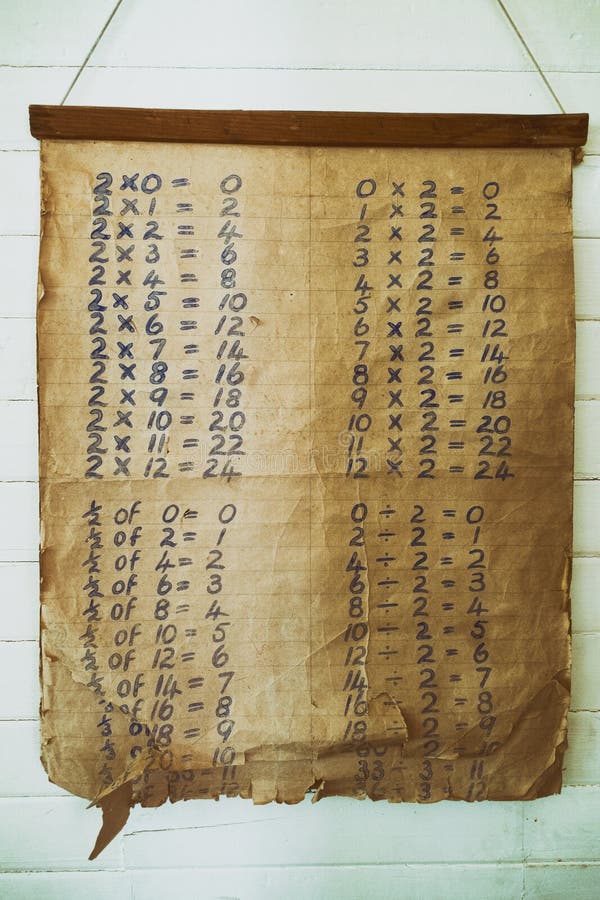 2 x 0 = 0
2 x 1 = 2
2 x 2 = 4
2 x 3 = 6
2 x 4 = 8
2 x 5 = 10
2 x 6 = 12
2 x 7 = 14
2 x 8 = 16
2 x 9 = 18
2 x 10 = 20
2 x 11 = 22
2 x 12 = 24
0 x 2 = 0
1 x 2 = 2
2 x 2 = 4
3 x 2 = 6
4 x 2 = 8
5 x 2 = 10
6 x 2 = 12
7 x 2 = 14
8 x 2 = 16
9 x 2 = 18
10 x 2 = 20
11 x 2 = 22
12 x 2 = 24
½ of 0 = 0
½ of 2 = 1
½ of 4 = 2
½ of 6 = 3
½ of 8 = 4
½ of 10 = 5
½ of 12 = 6
½ of 14 = 7
½ of 16 = 8
½ 18 = 9
= 10
= 11
= 12
0 ÷ 2 = 0
2 ÷ 2 = 1
4 ÷ 2 = 2
6 ÷ 2 = 3
8 ÷ 2 = 4
10 ÷ 2 = 5
12 ÷ 2 = 6
14 ÷ 2 = 7
16 ÷ 2 = 8
18 2 = 9
2 = 10
= 11
= 12
dreamstime